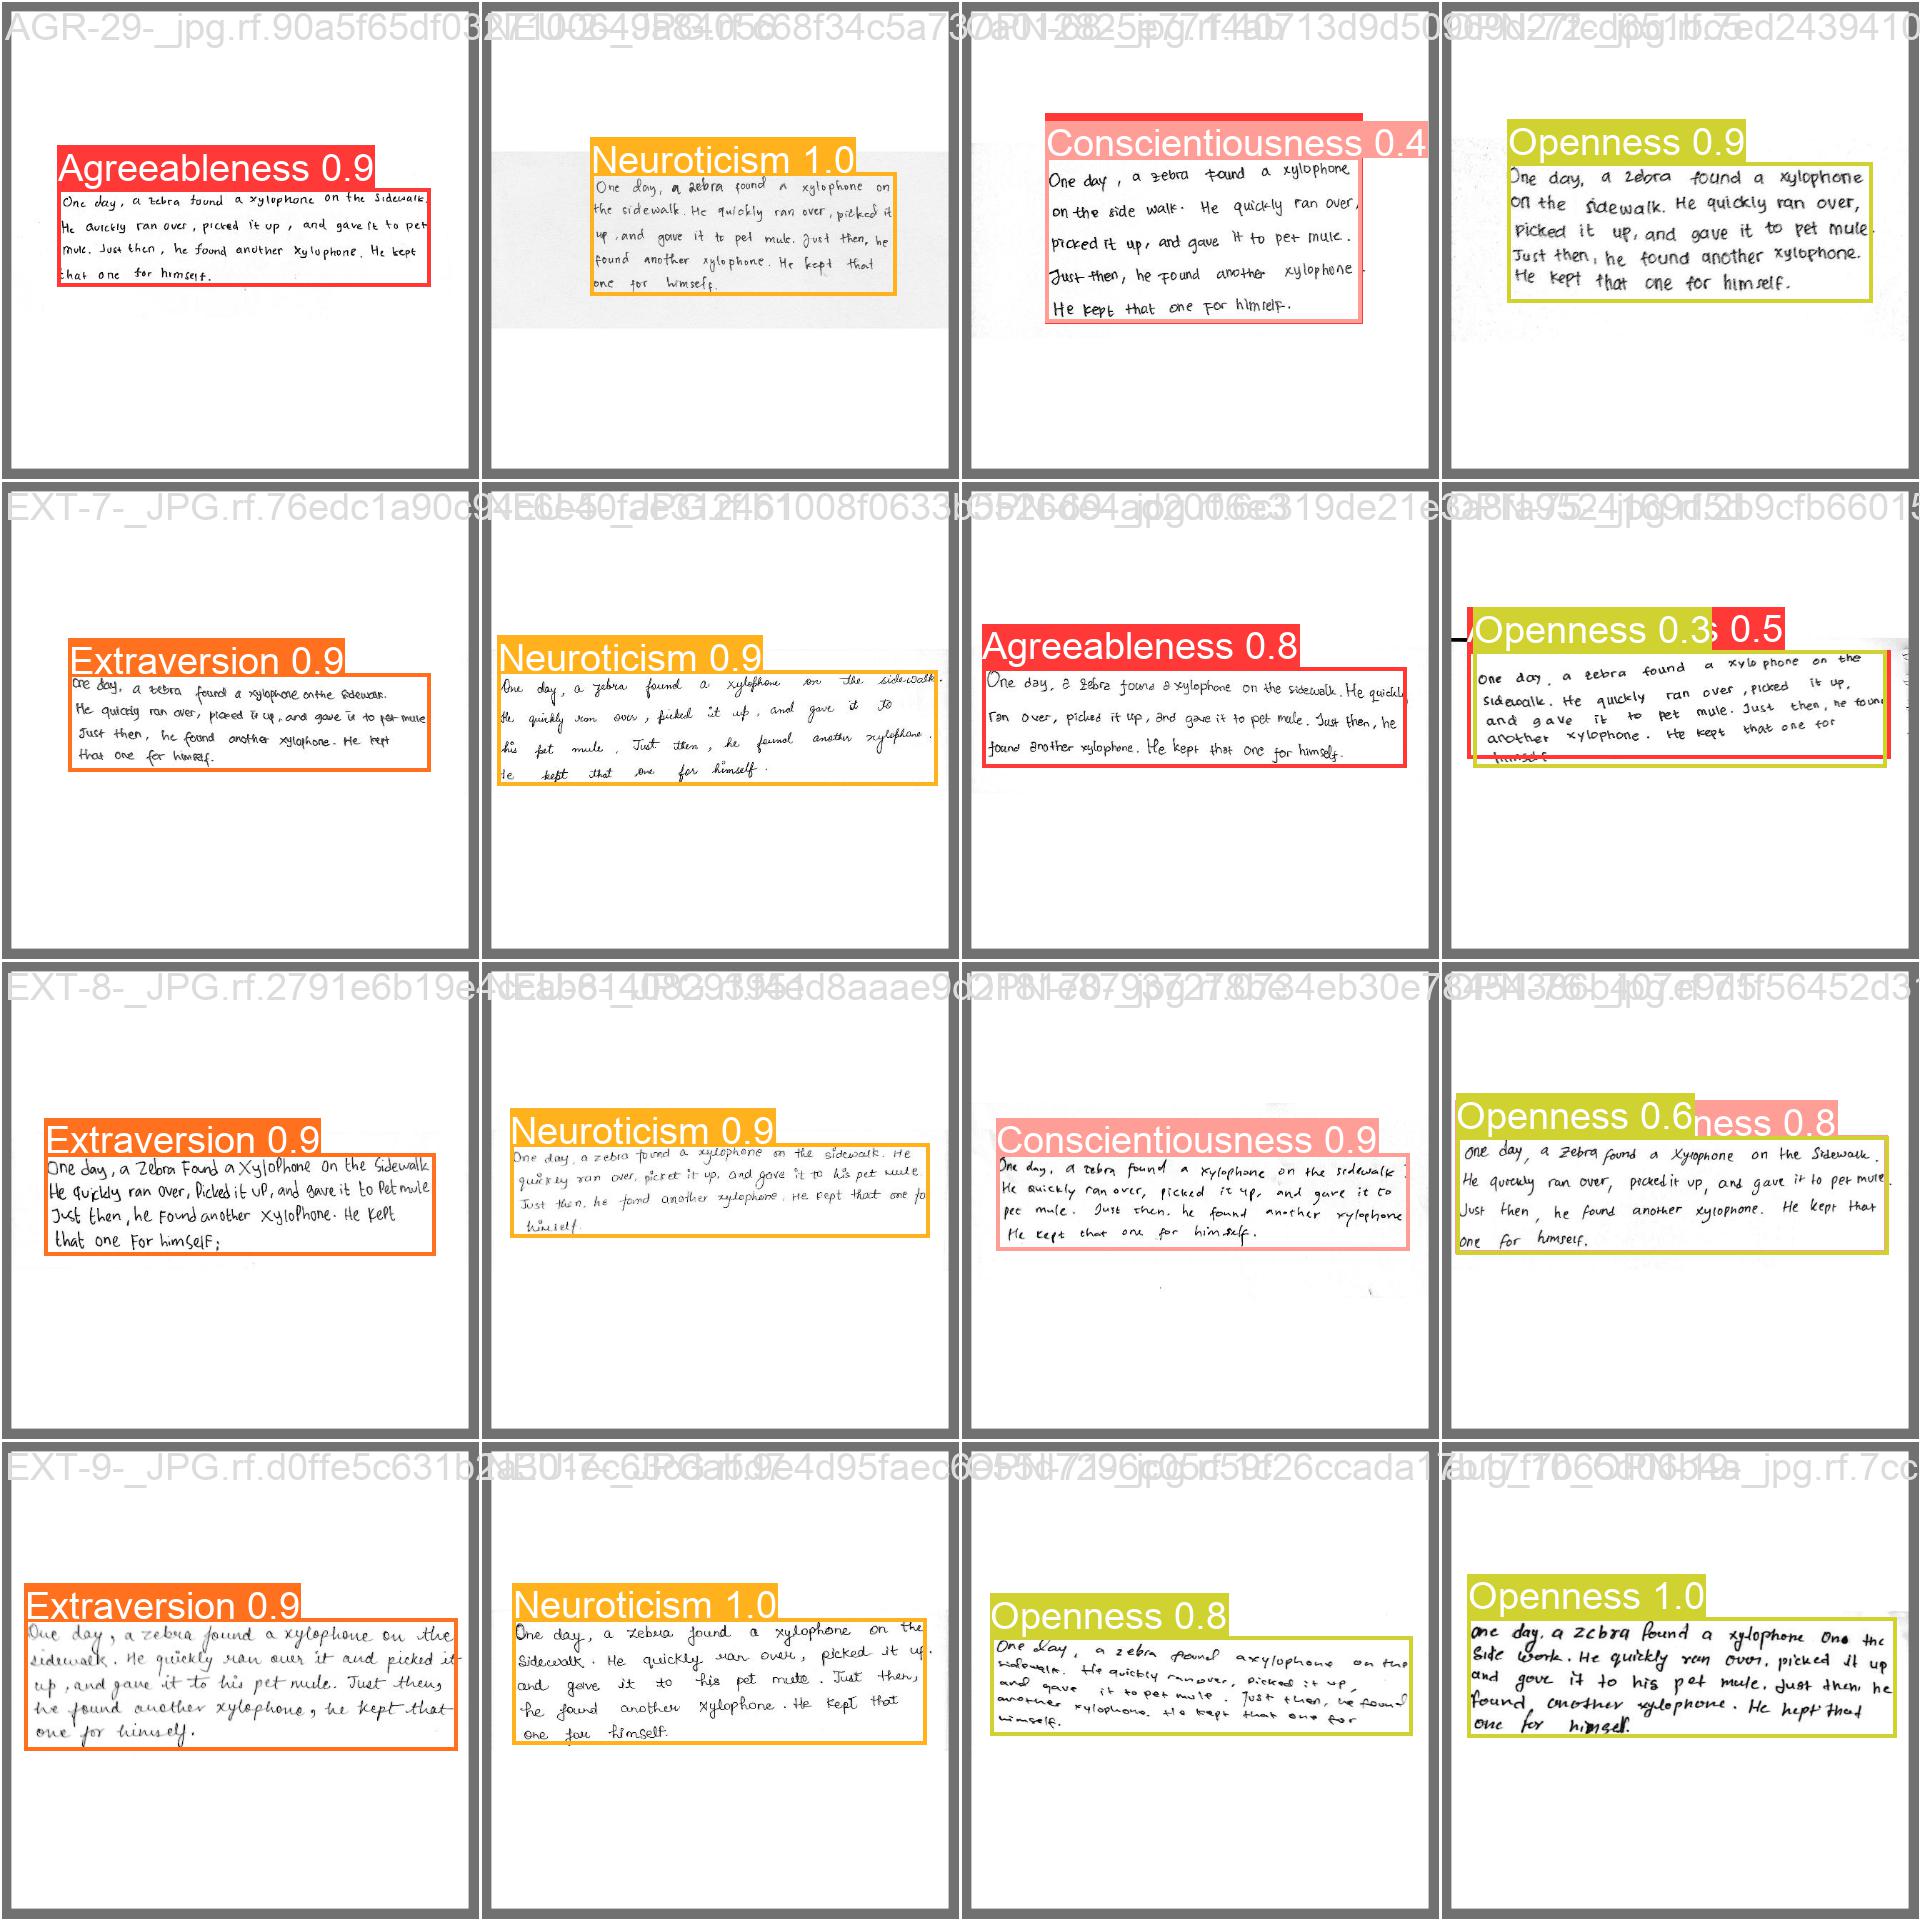 AGR-29-_jpg.rf.90a5f65df03
Agreeableness 0.9
One day, a zebra found a xylophone on the sidewalk.
He quickly ran over, picked it up, and gave it to pet
mule. Just then, he found another xylophone. He kept
that one for himself.
Neuroticism 1.0
One day, a zebra found a xylophone on
the sidewalk. He quickly ran over, picked it
up, and gave it to pet mule. Just then, he
found another xylophone. He kept that
one for himself.
Conscientiousness 0.4
One day, a zebra found a xylophone
on the side walk. He quickly ran over,
picked it up, and gave it to pet mule.
Just then, he found another xylophone.
He kept that one for himself.
Openness 0.9
One day, a zebra found a xylophone
on the sidewalk. He quickly ran over,
picked it up, and gave it to pet mule.
Just then, he found another xylophone.
He kept that one for himself.
EXT-7-_JPG.rf.76edc1a90c
Extraversion 0.9
One day, a zebra found a xylophone on the sidewalk.
He quickly ran over, picked it up, and gave it to pet mule
Just then, he found another xylophone. He kept
that one for himself.
Neuroticism 0.9
One day, a zebra found a xylophone on the sidewalk.
He quickly ran over, picked it up, and gave it to
his pet mule. Just then, he found another xylophone.
He kept that one for himself.
Agreeableness 0.8
One day, a zebra found a xylophone on the sidewalk. He quickly
ran over, picked it up, and gave it to pet mule. Just then, he
found another xylophone. He kept that one for himself.
Openness 0.3 s 0.5
One day, a zebra found a xylophone on the
sidewalk. He quickly ran over, picked it up,
and gave it to pet mule. Just then, he found
another xylophone. He kept that one for
himself
EXT-8-_JPG.rf.2791e6b19e4
Extraversion 0.9
One day, a Zebra Found a Xylophone on the Sidewalk
He quickly ran over, Picked it up, and gave it to Pet mule
Just then, he Found another Xylophone. He kept
that one For himself;
Neuroticism 0.9
One day, a zebra found a xylophone on the sidewalk. He
quickly ran over, picket it up, and gave it to his pet mule
Just then, he found another xylophone. He kept that one fo
himself.
Conscientiousness 0.9
One day, a zebra found a xylophone on the sidewalk.
He quickly ran over, picked it up, and gave it to
pet mule. Just then, he found another xylophone
He kept that one for himself.
Openness 0.6 ness 0.8
One day, a Zebra found a Xyophone on the Sidewalk.
He quickly ran over, picked it up, and gave it to pet mule.
Just then, he found another xylophone. He kept that
one for himself.
EXT-9-_JPG.rf.d0ffe5c631b2
Extraversion 0.9
One day, a zebra found a xylophone on the
sidewalk. He quickly ran over it and picked it
up, and gave it to his pet mule. Just then,
he found another xylophone, he kept that
one for himself.
Neuroticism 1.0
One day, a zebra found a xylophone on the
Sidewalk. He quickly ran over, picked it up.
and gave it to his pet mule. Just then,
he found another xylophone. He kept that
one for himself.
Openness 0.8
One day, a zebra found a xylophone on the
sidewalk. He quickly ran over, picked it up,
and gave it to pet mule. Just then, he found
another xylophone. He kept that one for
himself.
Openness 1.0
One day, a zebra found a xylophone One the
side work. He quickly ran over, picked it up
and gave it to his pet mule. Just then he
found another xylophone. He kept that
one for himself.